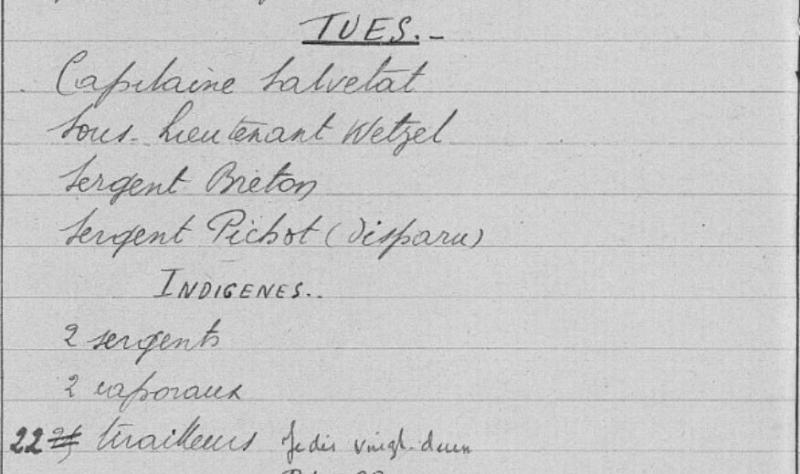 TUES.-
Capitaine Salvetat
Sous-Lieutenant Wetzel
Sergent Breton
Sergent Pichot (disparu)
INDIGENES..
2 sergents
2 caporaux
22 tirailleurs Je dis vingt-deux